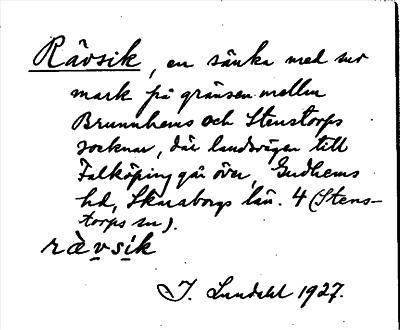 Rävsik, en sänka med sur
mark på gränsen mellan
Brunnhems och Stenstorps
socknar, där landsvägen till
Falköping går över, Gudhems
hd, Skaraborgs län. 4 (Stens-
torps sn).
rävsik
J. Lundahl 1927.